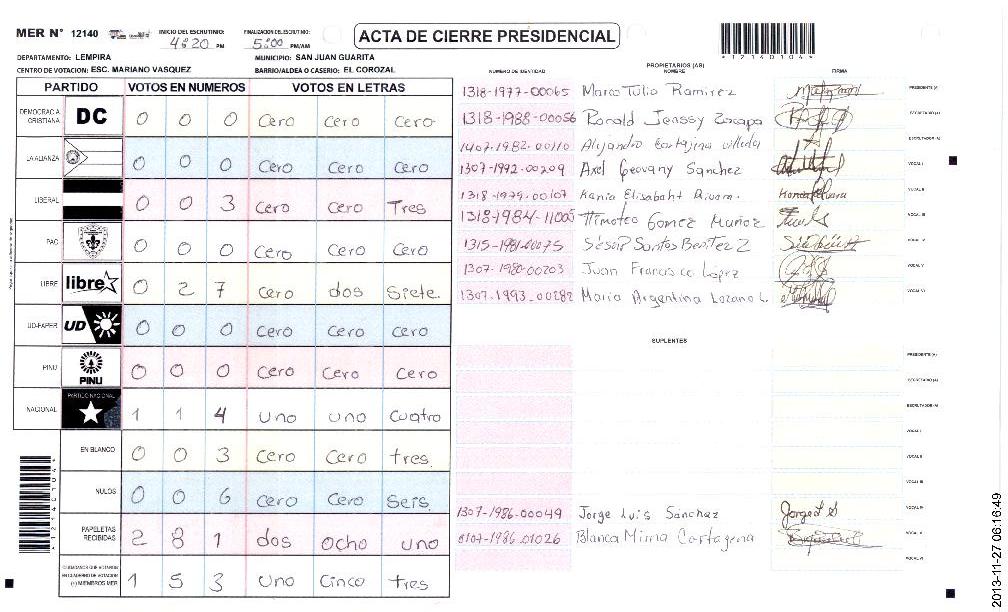 MER N° 12140 INICIO DEL ESCRUTINIO: 4:20 PM FINALIZACION DEL ESCRUTINIO: 5:00 PM/AM
ACTA DE CIERRE PRESIDENCIAL
*12140104*
DEPARTAMENTO: LEMPIRA MUNICIPIO: SAN JUAN GUARITA
CENTRO DE VOTACION: ESC. MARIANO VASQUEZ BARRIO/ALDEA O CASERIO: EL COROZAL
PARTIDO VOTOS EN NUMEROS VOTOS EN LETRAS
DEMOCRACIA CRISTIANA DC 0 0 0 Cero Cero Cero
LA ALIANZA 0 0 0 Cero Cero Cero
LIBERAL 0 0 3 Cero Cero Tres
PAC 0 0 0 Cero Cero Cero
LIBRE libre 0 2 7 Cero dos Siete.
UD-FAPER UD 0 0 0 Cero cero cero
PINU PINU 0 0 0 Cero Cero Cero
NACIONAL PARTIDO NACIONAL 1 1 4 uno uno Cuatro
EN BLANCO 0 0 3 Cero Cero tres.
NULOS 0 0 6 Cero Cero Seis.
PAPELETAS RECIBIDAS 2 8 1 dos Ocho uno
CIUDADANOS QUE VOTARON EN CUADERNO DE VOTACION (+) MIEMBROS MER 1 5 3 uno Cinco tres
PROPIETARIOS (AS)
NUMERO DE IDENTIDAD NOMBRE FIRMA
1318-1977-00065 Marco Tulio Ramirez PRESIDENTE (A)
1318-1988-00056 Ronald Jeassy Zacapa SECRETARIO (A)
1407-1982-00110 Alejandro Cartajina Villeda ESCRUTADOR (A)
1307-1992-00209 Axel Geovany Sanchez VOCAL I
1318-1979-00107 Kania Elisabaht VOCAL II
1318-1984-11005 Timoteo Gomez Muñoz VOCAL III
1315-1981-00075 Santos Benitez Z VOCAL IV
1307-1980-00203 Juan Francisco Lopez VOCAL V
1307-1993-00282 Maria Argentina Lozano L. VOCAL VI
SUPLENTES
PRESIDENTE (A)
SECRETARIO (A)
ESCRUTADOR (A)
VOCAL I
VOCAL II
VOCAL III
1307-1986-00049 Jorge Luis Sanchez Jorge L S VOCAL IV
0107-1986-01026 Blanca Mirna Cartagena VOCAL V
VOCAL VI
2013-11-27 06:16:49